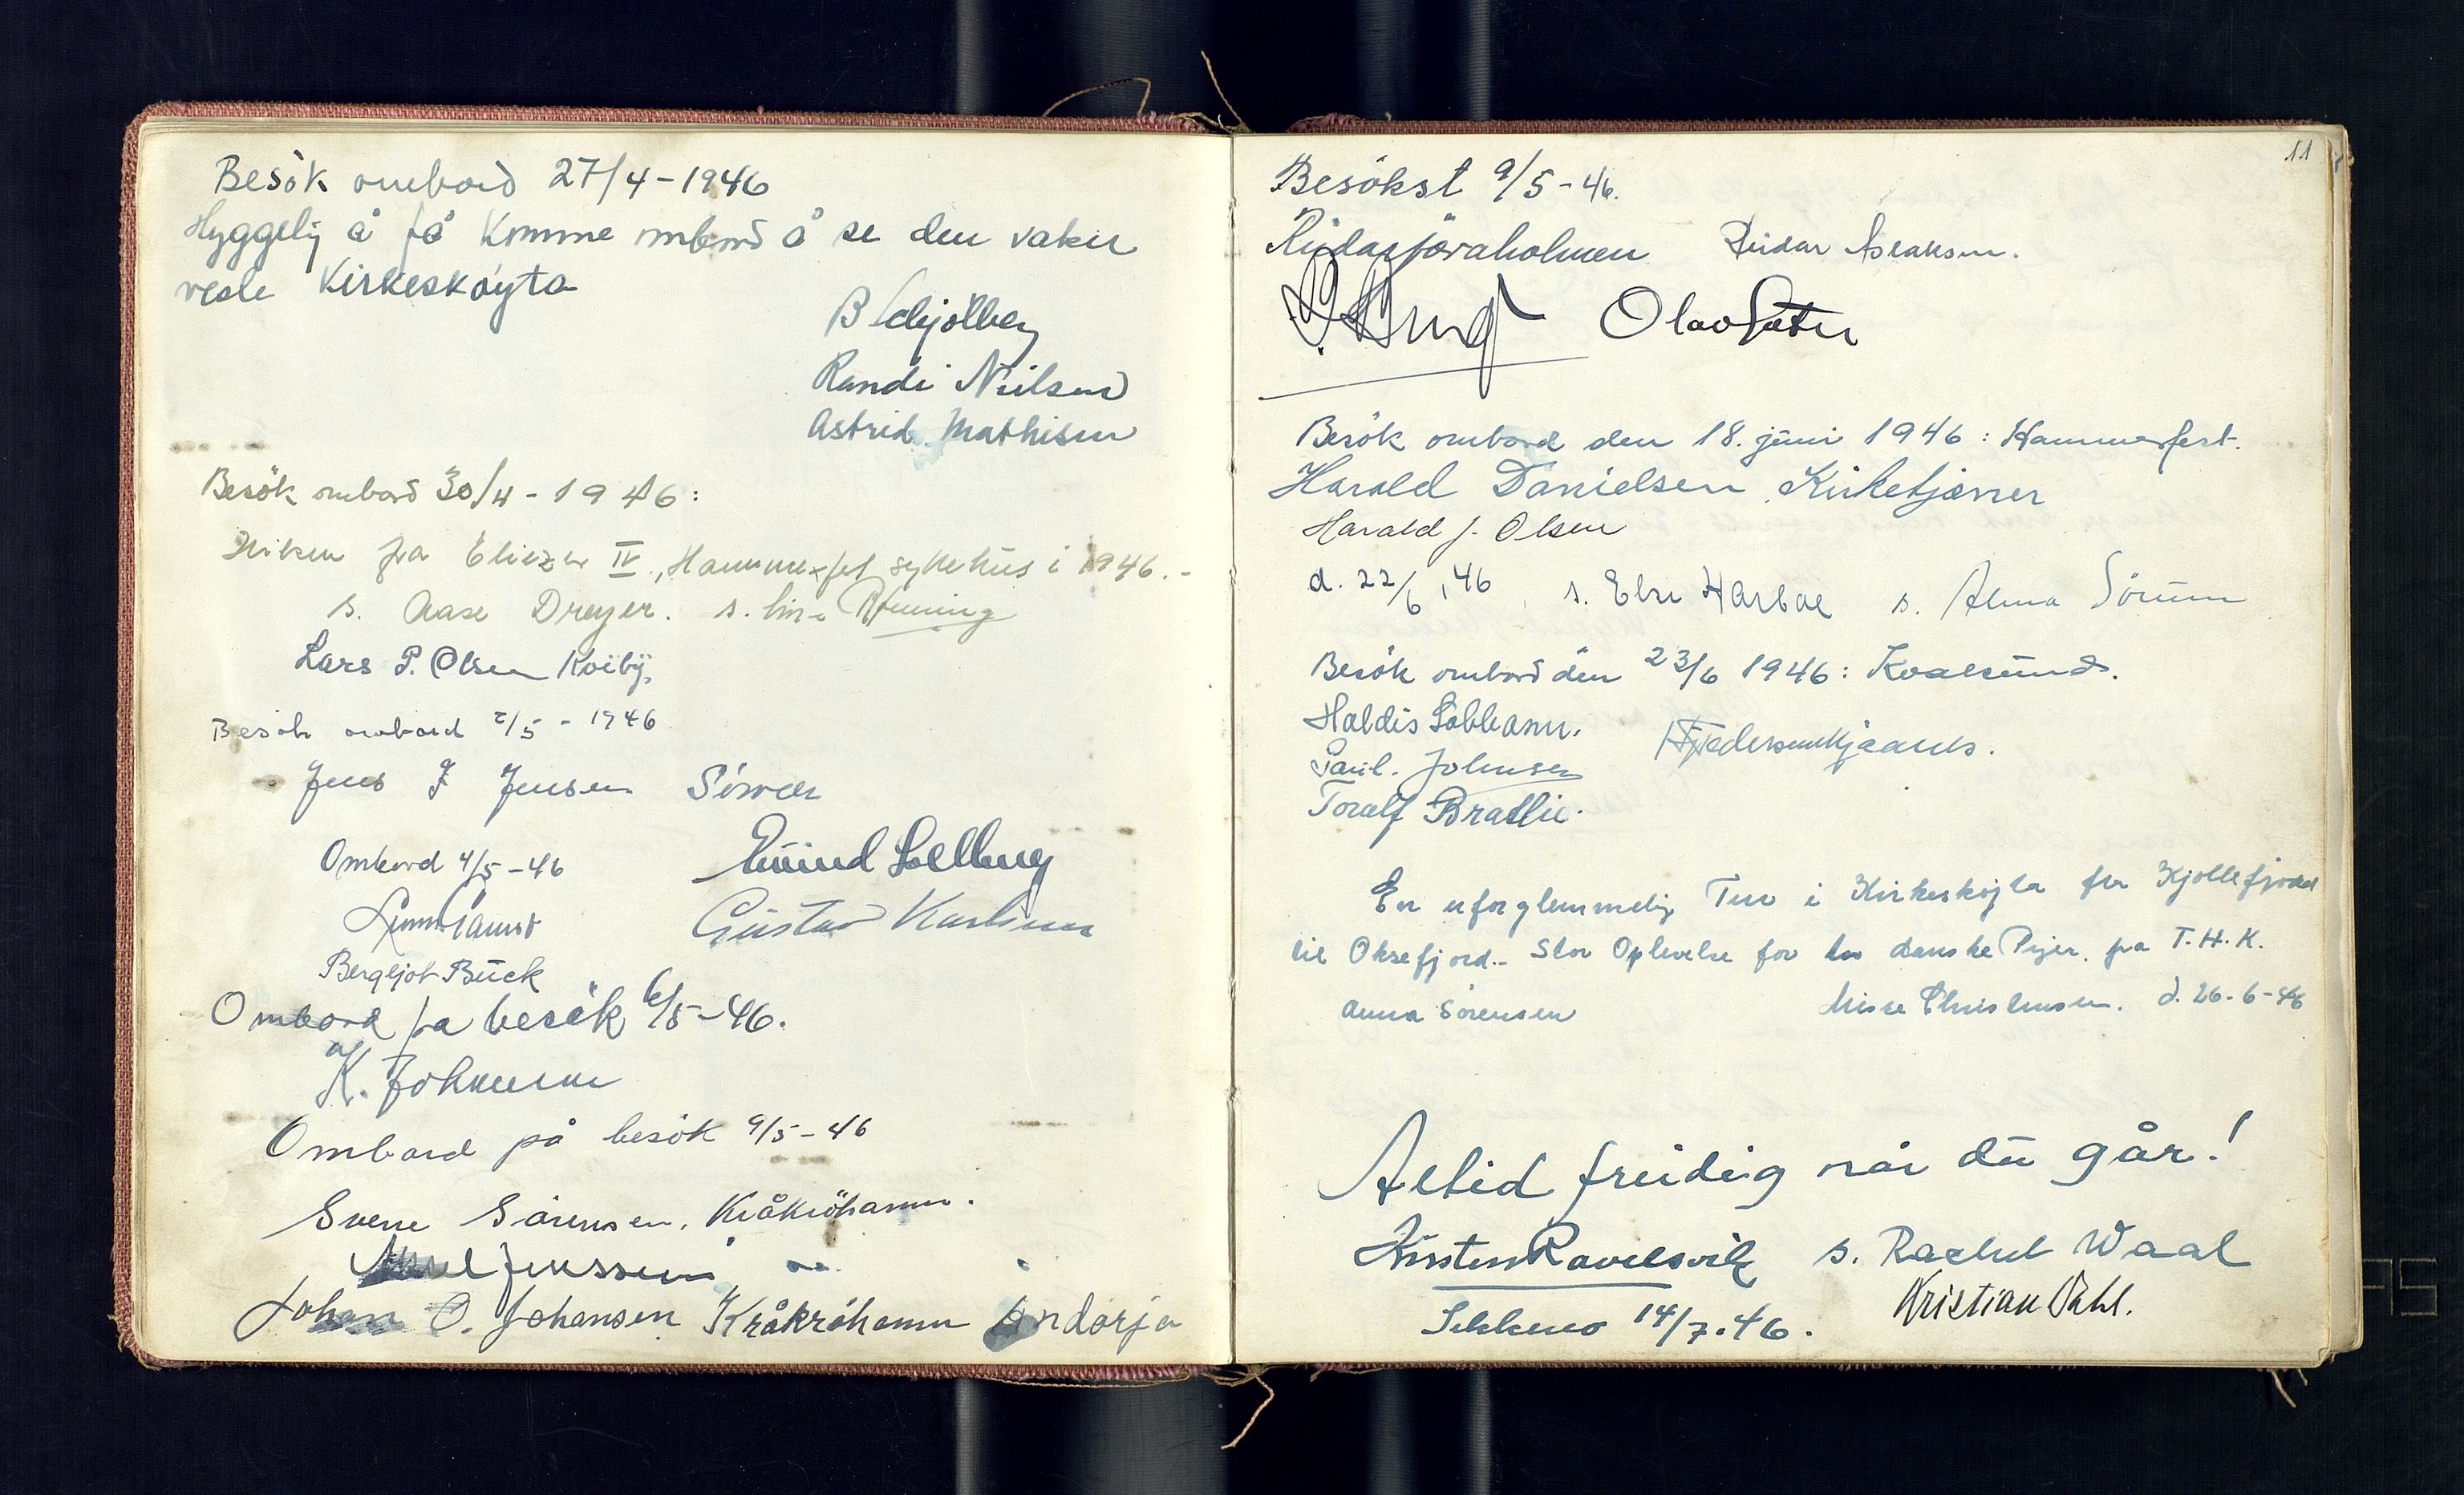 Besök ombord 27/4-1946
Hyggelig å få komme ombord å se den vakre
vesle Kirkeskøyta
Randi Nielsen
Astrid Mathisen
Besök ombord 30/4-1946:
fra Eliezer IV, Hammerfest sykehus i 1946.-
s. Aase Dreyer. s.
Lars P. Olsen
Besök ombord 2/5-1946
Jens J Jensen
Ombord 4/5-46
Eivind Solberg
Gustav Karlsen
Bergljot Bück
Ombord på besök 6/5-46.
K. Johnsen
Ombord på besök 9/5-46
Sverre Sörensen, Kråkröhamn.
Jenssen
Johan O. Johansen Kråkröhamn Andorja
11
Besökst 9/5-46.
Reidar Aslaksen.
Olav
Besök ombord den 18. juni 1946: Hammerfest.
Harald Danielsen Kirketjener
Harald J. Olsen
d. 22/6, 46 s. Else Harboe s. Alma Sörum
Besök ombord den 23/6 1946: Kvalsund.
Haldis
Paul. Johnsen
Toralf Bratlie.
En uforglemmelig Tur i Kirkeskøjta fra Kjøllefjord
til Oksefjord.- Stor Oplevelse for to danske Piger. fra T.H.K.
Anna Sørensen Misse Christensen. d. 26-6-46
Altid freidig når du går!
Kirsten s. Rachel Waal
Kristian Dahl.
14/7.46.